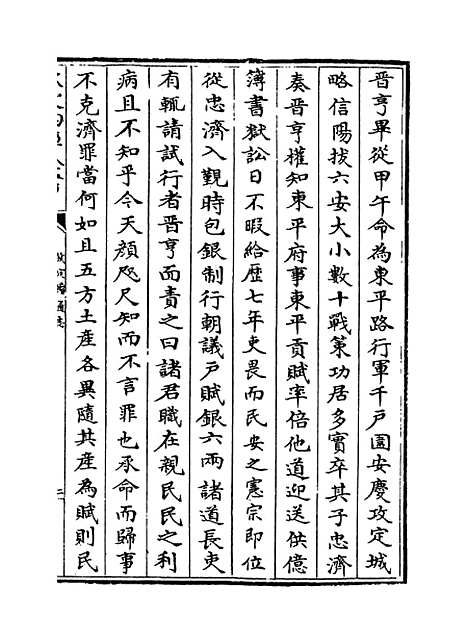 晋亨畢從甲午命為東平路行軍千戶圍安慶攻定城
略信陽拔六安大小數十戰策功居多實卒其子忠濟
奏晋亨權知東平府事東平貢賦率倍他道迎送供億
簿書獄訟日不暇給歴七年吏畏而民安之憲宗即位
從忠濟入覲時包銀制行朝議戸賦銀六兩諸道長吏
有輒請試行者晋亨面責之曰諸君職在親民民之利
病且不知乎今天顔咫尺知而不言罪也承命而歸事
不克濟罪當何如且五方土産各異隨其産為賦則民